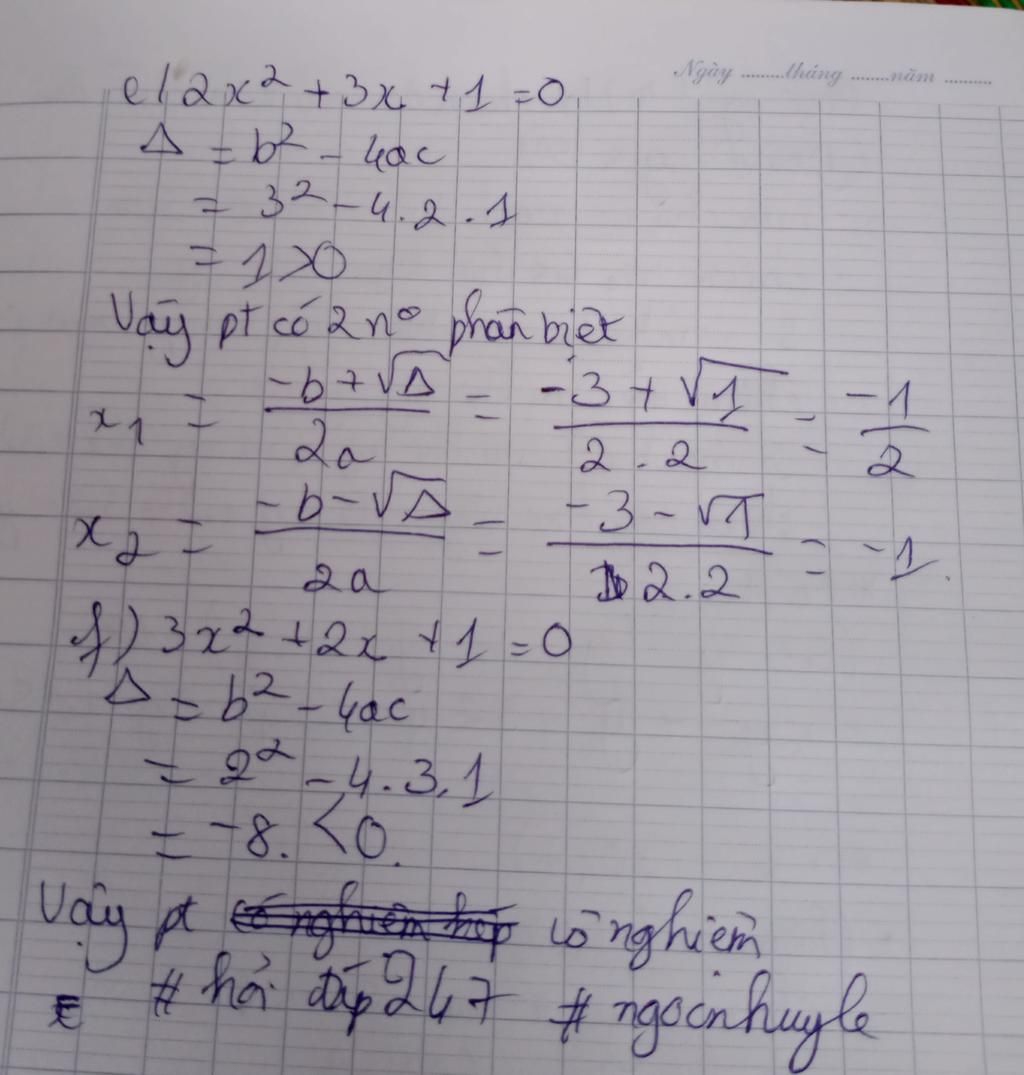 Ngày ........tháng ........năm .........
e/ 2x² + 3x + 1 = 0
Δ = b² - 4ac
= 3² - 4.2.1
= 1 > 0
Vậy pt có 2 n⁰ phân biệt
x₁ = (-b + √Δ)/(2a) = (-3 + √1)/(2.2) = -1/2
x₂ = (-b - √Δ)/(2a) = (-3 - √1)/(2.2) = -1.
f) 3x² + 2x + 1 = 0
Δ = b² - 4ac
= 2² - 4.3.1
= -8. < 0.
Vậy pt có nghiệm kép vô nghiệm
# hỏi đáp 247 # ngocnhuyle